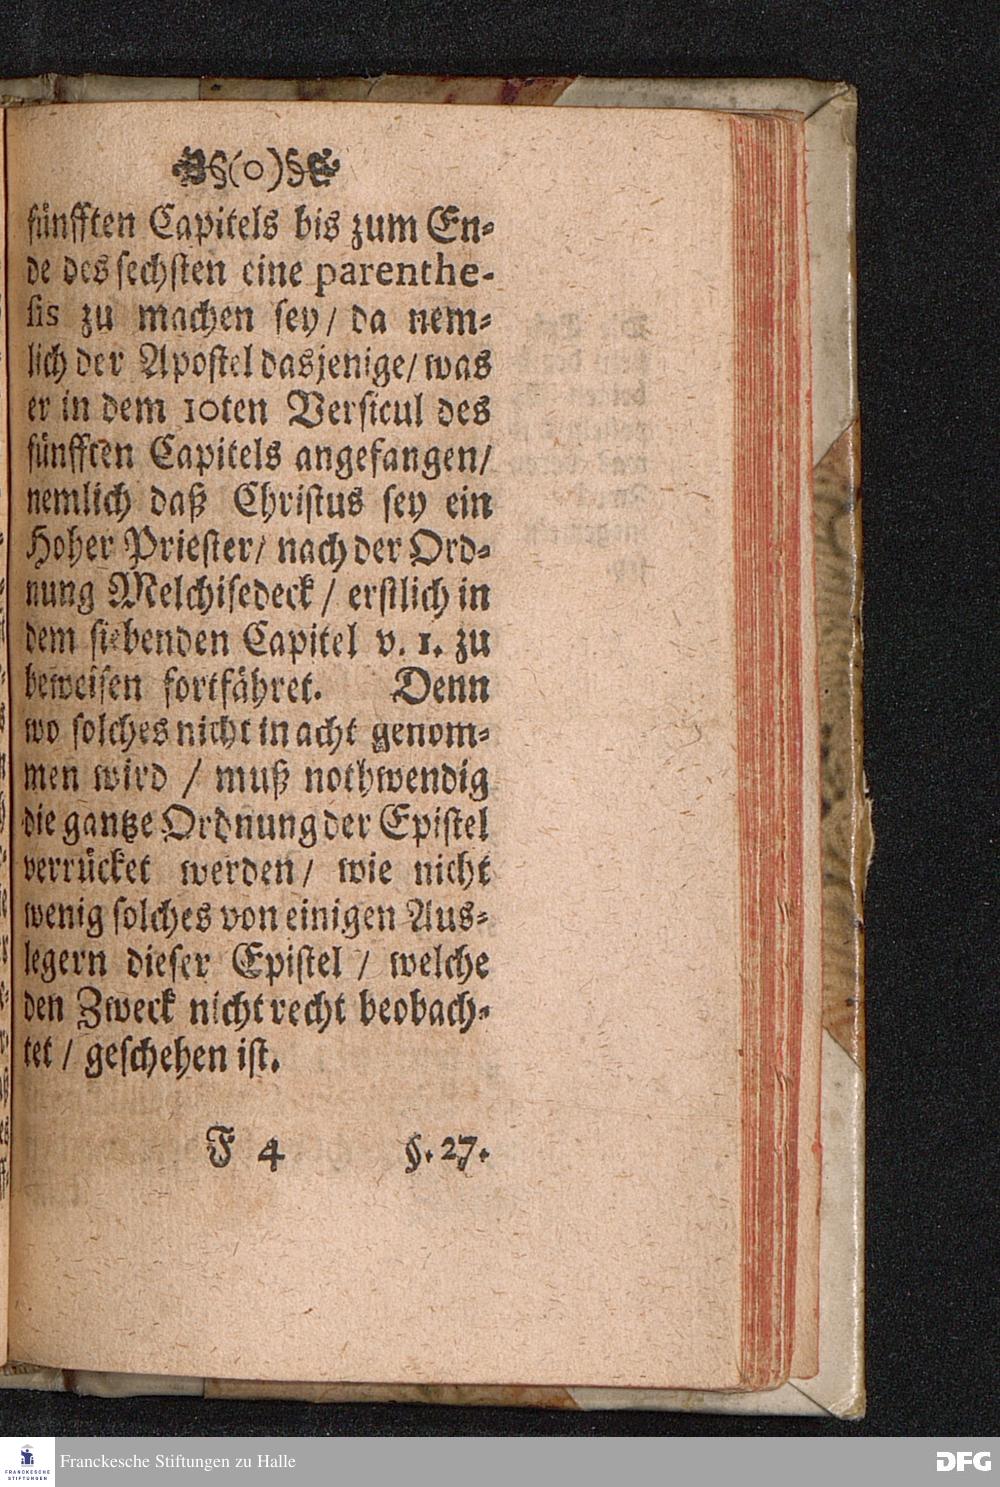 §(o)§
fünfften Capitels bis zum En-
de des sechsten eine parenthe-
sis zu machen sey/ da nem-
lich der Apostel dasjenige/ was
er in dem 10ten Versicul des
fünfften Capitels angefangen/
nemlich daß Christus sey ein
Hoher Priester/ nach der Ord-
nung Melchisedeck / erstlich in
dem siebenden Capitel v. 1. zu
beweisen fortfähret. Denn
wo solches nicht in acht genom-
men wird / muß nothwendig
die gantze Ordnung der Epistel
verrücket werden/ wie nicht
wenig solches von einigen Aus-
legern dieser Epistel / welche
den Zweck nicht recht beobach-
tet / geschehen ist.
F 4 §. 27.
FRANCKESCHE
STIFTUNGEN
Franckesche Stiftungen zu Halle
DFG